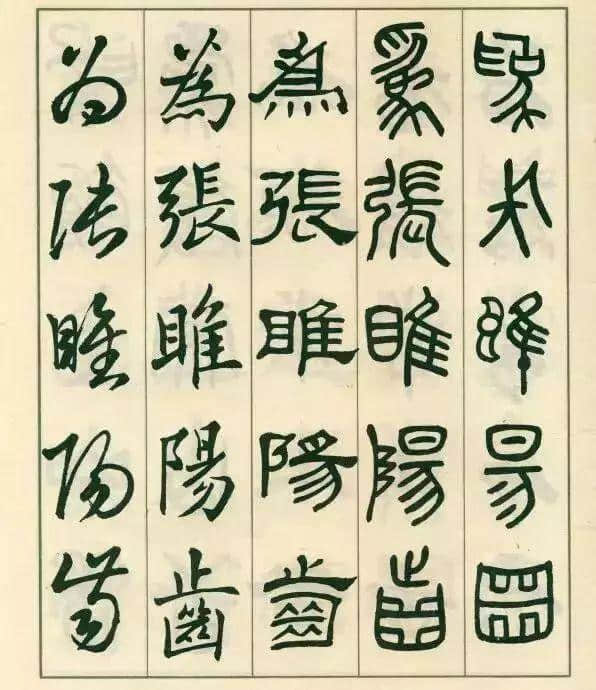 為張睢陽齒
為張睢陽齒
為張睢陽齒
為張睢陽齒
为張睢陽齒